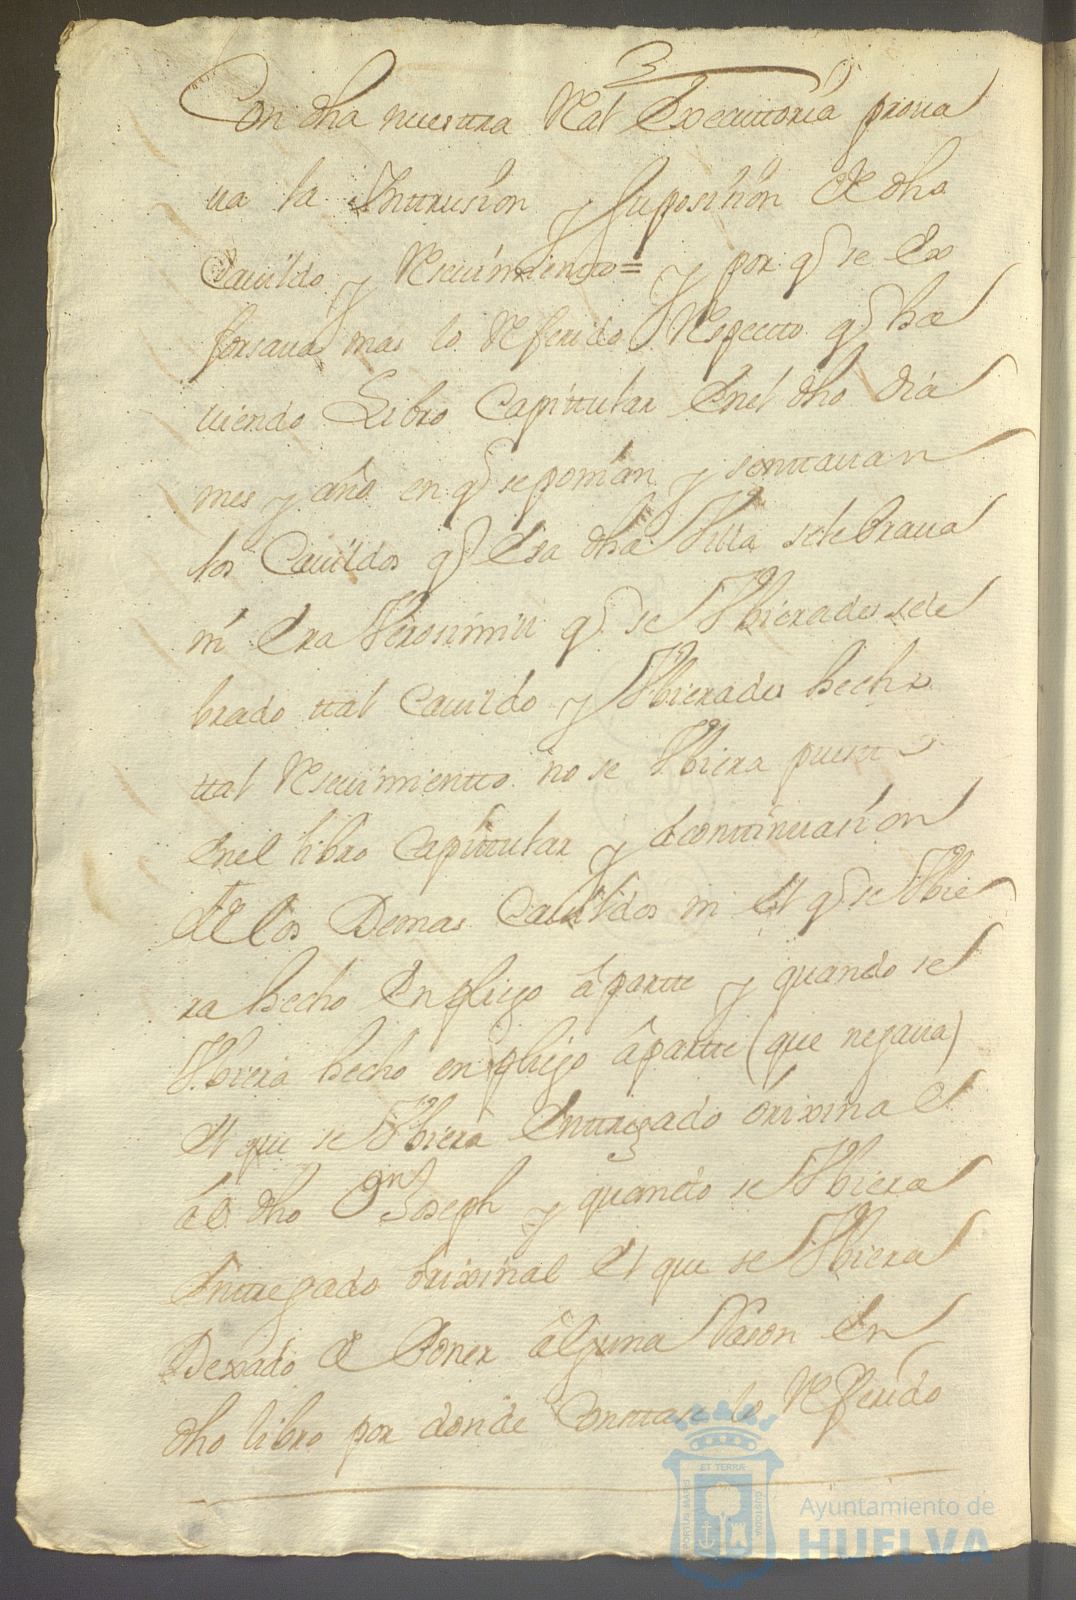 Con dha nuestra Real Executtoria prova
va la Inttrusion y suposision de dha
Cavildo y Resevimiento = y por q̃ se Ex
forsava mas lo Referido Respecto q̃ ha
viendo Libro Capittular Enel dho dia
mes y año en q̃ se ponian y senttavan
los Cavildos q̃ Esa dha Villa selebrava
ni Era Verosimil q̃ se Vbierade sele
brado ttal Cavildo y Vbierade hecho
ttal Resevimientto no se Vbiera puest
Enel libro Capittular y acontinuasion
de los Demas Cavildos ni El q̃ se Vbie
ra hecho En pliego âpartte y quando se
Vbiera hecho en pliego âpartte (que negava)
El que se Vbiera Enttregado orixinal
âl dho Dn Joseph y quando se Vbiera
Enttregado orixinal El que se Vbiera
Dexado de Poner âlguna Rason En
dho libro por donde Consttase lo Referido
ET TERRÆ
PORTUS MARIS
CUSTODIA
Ayuntamiento de
HUELVA